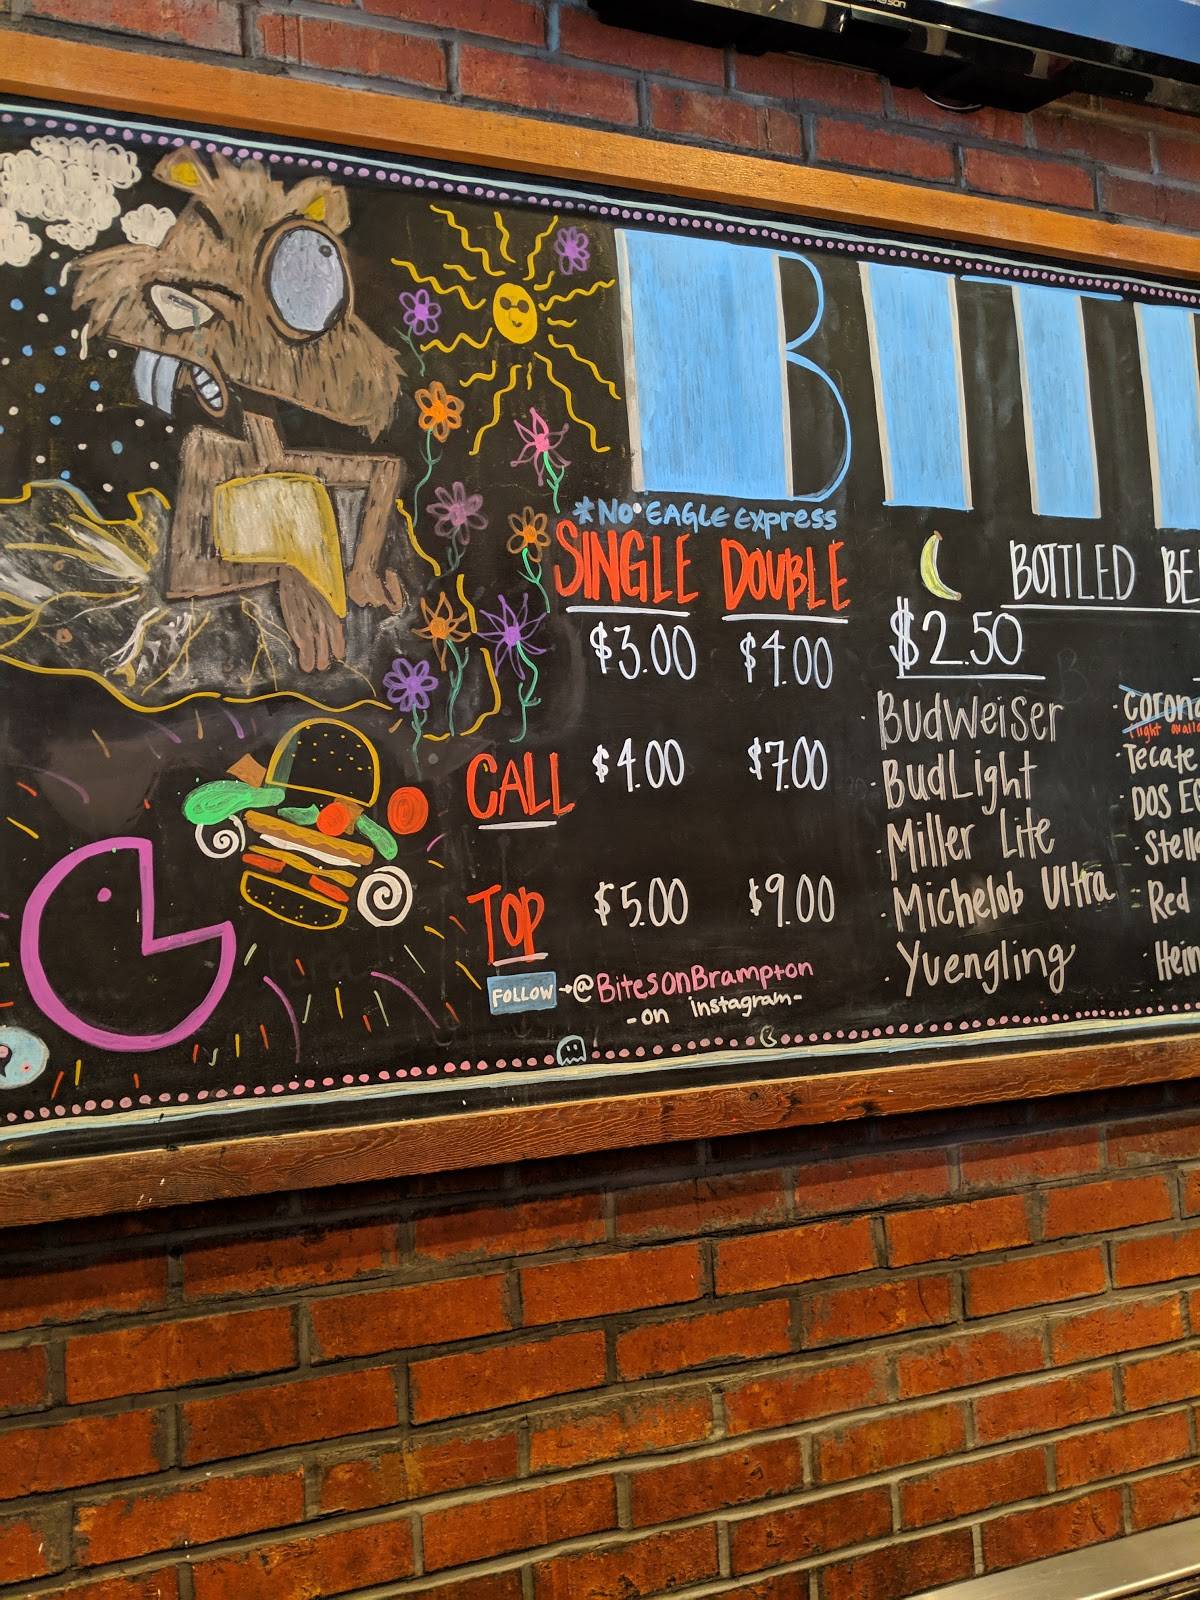 BIT
*NO EAGLE EXPRESS
SINGLE DOUBLE
$3.00 $4.00
CALL $4.00 $7.00
TOP $5.00 $9.00
FOLLOW → @BitesonBrampton
- on instagram -
BOTTLED BE
$2.50
· Budweiser
· BudLight
· Miller Lite
· Michelob Ultra
· Yuengling
· Corona
light
· Tecate
· DOS E
· Stella
· Red
· Hein